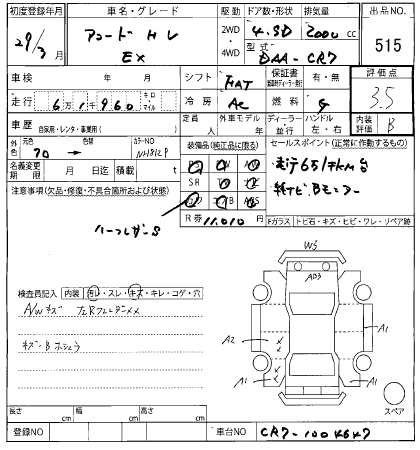 初度登録年月 車名・グレード 駆動 ドア数・形状 排気量 出品NO.
29/3月 アコード HV EX 2WD・4WD 4.SD 2000cc 515
型式 DAA-CR7
車検 年 月 シフト FAT 保証書 有・無 評価点
走行 6万1千960 キロ マイル 冷房 AC 燃料 G 3.5
車歴 自家用・レンタ・事業用( ) 定員 人 外車モデル 年 ディーラー 並行 ハンドル 左・右 内装評価 B
外色 元色 70 → 色替 カラーNO NH812P 装備品(純正品に限る) セールスポイント(正常に作動するもの)
名義変更期限 月 日迄 積載 t
・走行651千KM台
注意事項(欠品・修復・不具合箇所および状態) SR
・純ナビ Bモニター
ハーフレザーS
R券 11,010円
Fガラス トビ石・キズ・ヒビ・ワレ・リペア跡
W3
AD3
検査員記入 内装 汚レ・スレ・キズ・キレ・コゲ・穴
A/Wキズ 左Rフェンダーメメ
A2 A1
キズ・B ホシュウ
A1 A1
スペア
長さ cm 幅 cm 高さ cm
登録NO 車台NO CR7-1004647